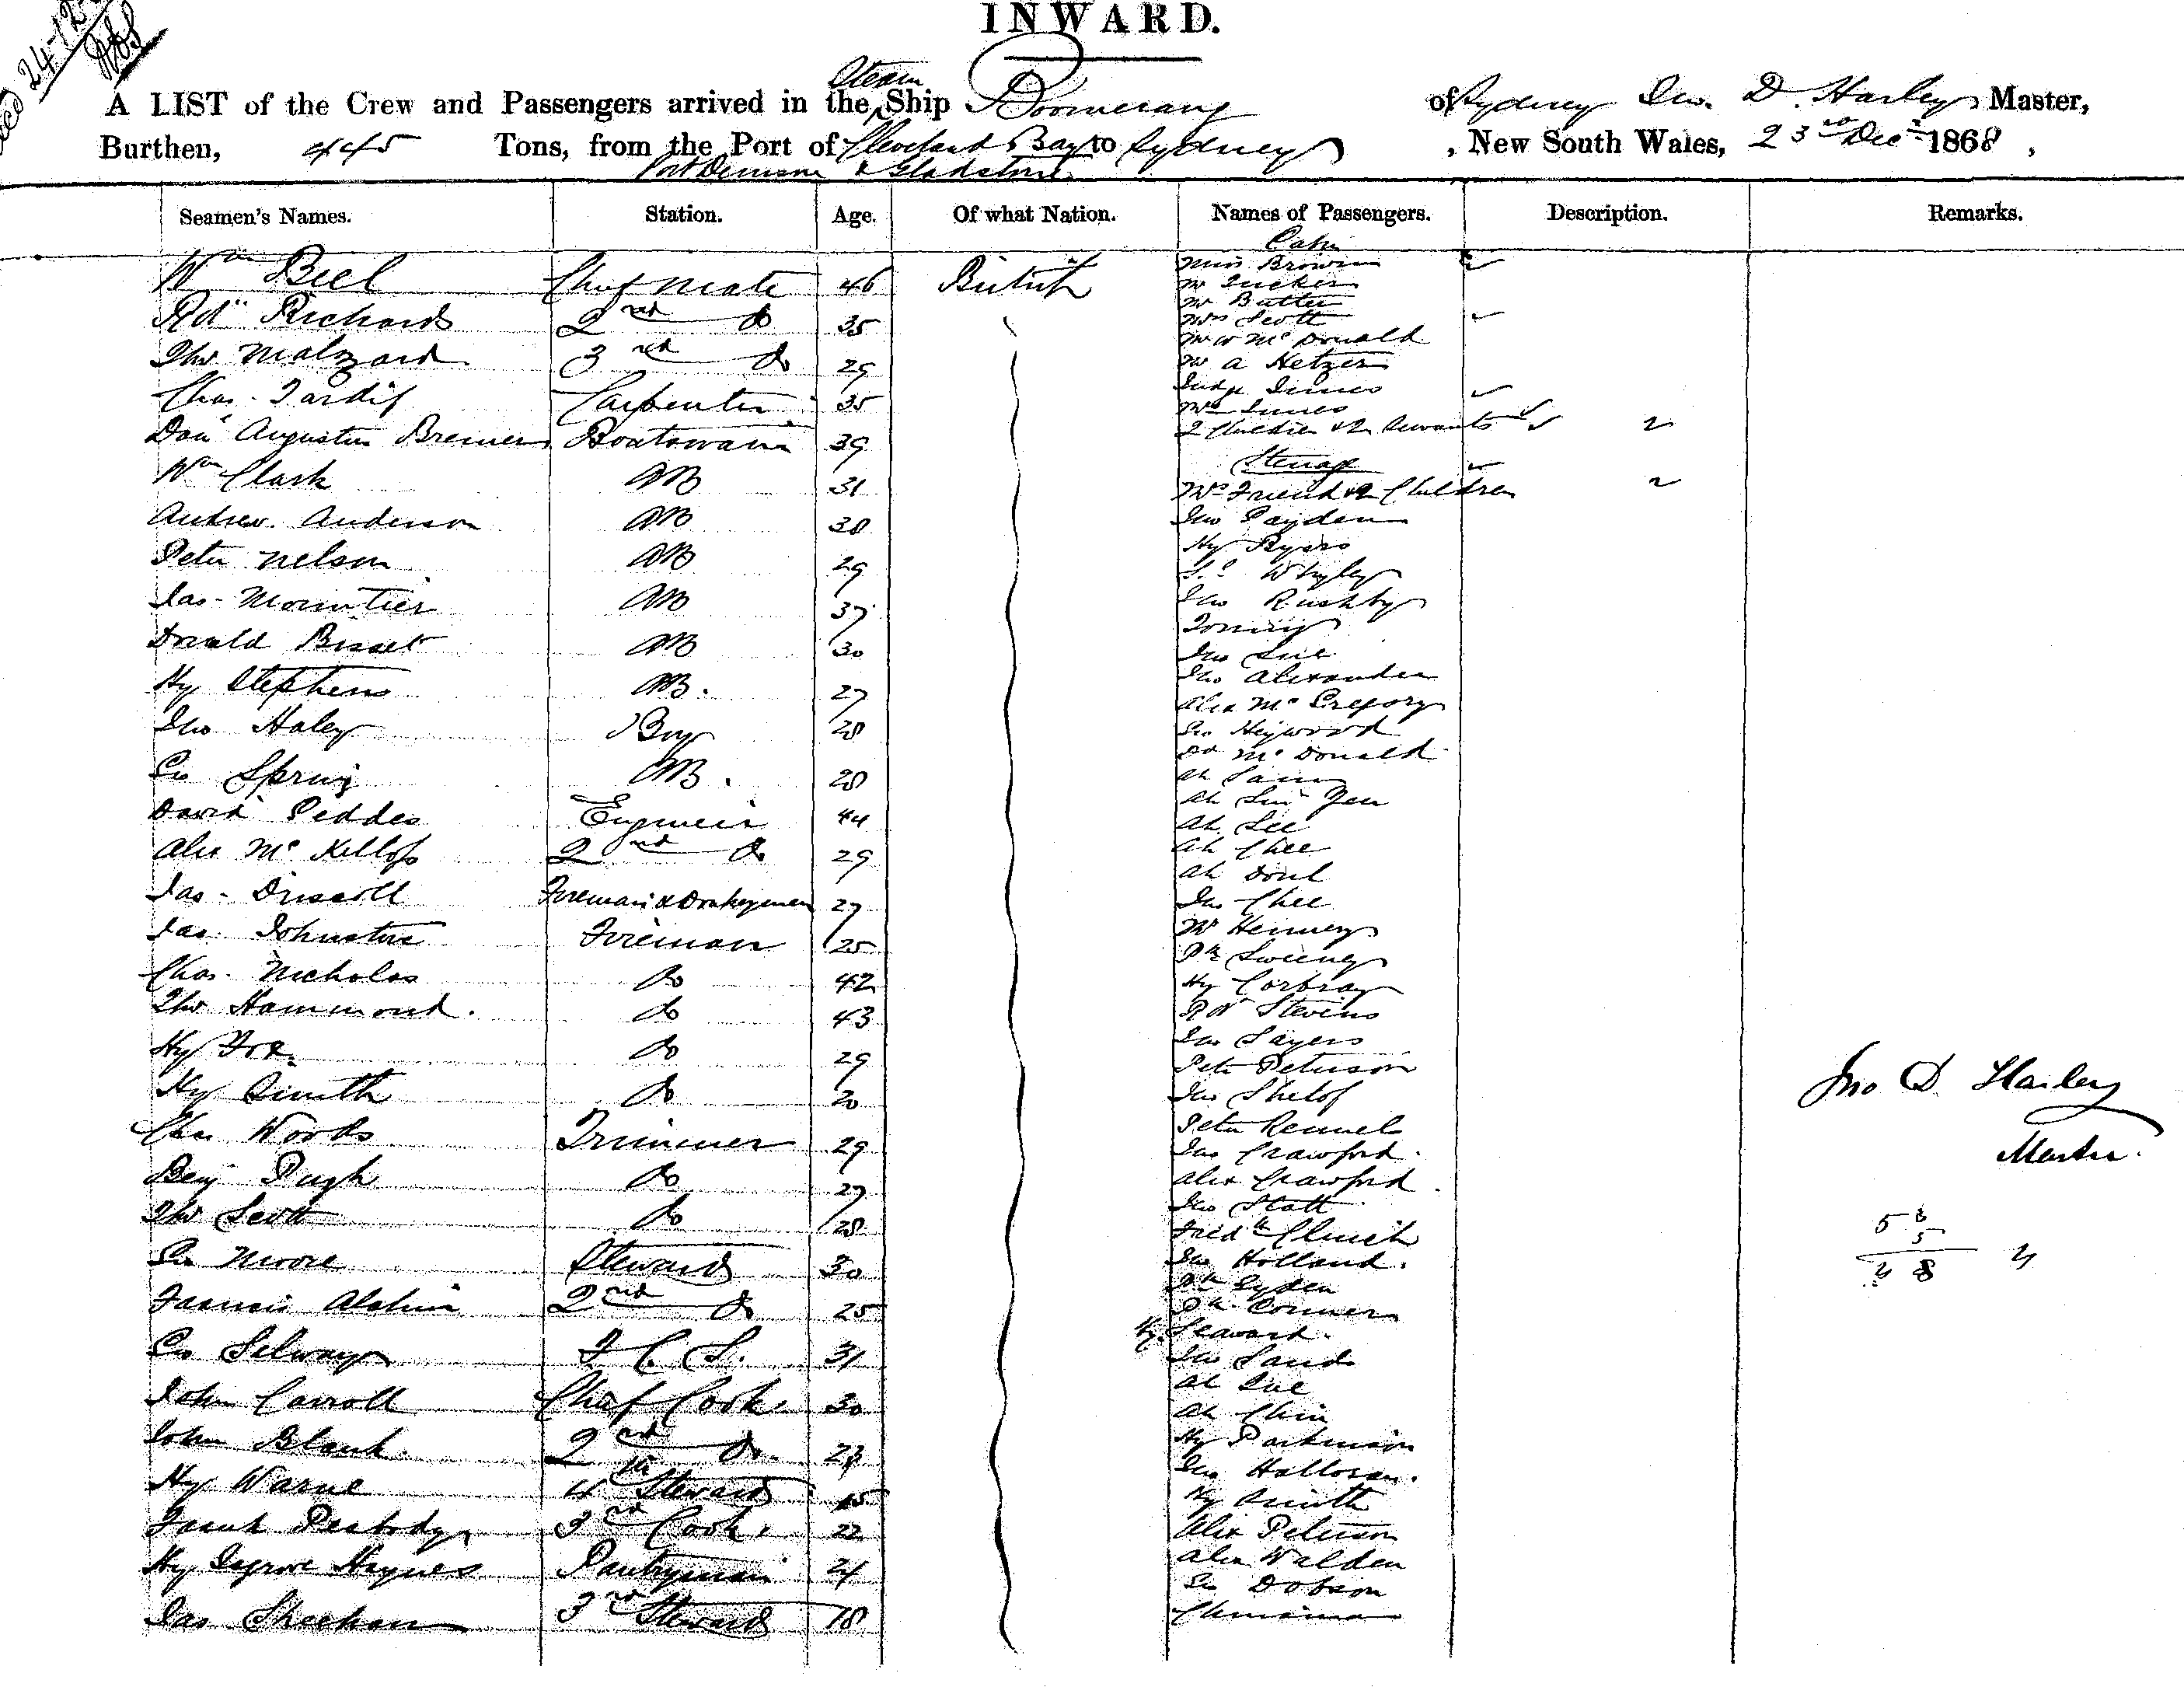 INWARD.
24-12
Steam
A LIST of the Crew and Passengers arrived in the Ship Boomerang of Sydney Jno. D. Harley Master,
Burthen, 445 Tons, from the Port of Cleveland Bay to Sydney, New South Wales, 23rd Decr 1868,
Port Denison & Gladstone
Seamen's Names. Station. Age. Of what Nation. Names of Passengers. Description. Remarks.
Wm Biel Chief Mate 46 British
Rd Richards 2nd Do 35
Thos Malzard 3rd Do 29
Chas. Tardif Carpenter 35
Danl Augustus Bremer Boatswain 39
Wm Clark AB 31
Andrew Anderson AB 38
Peter Nelson AB 29
Jas. Mouritier AB 37
Donald Bisset AB 30
Hy Stephens AB. 27
Jno Haley Boy 28
Geo Spring AB. 28
David Peddes Engineer 44
Alex McKellop 2nd Do 29
Jas. Driscoll Foreman & Donkeyman 27
Jas. Johnstone Fireman 25
Chas. Nicholas Do 42
Thos Hammond. Do 43
Hy Fox. Do 29
Hy Smith Do 20
Chas Woods Trimmer 29
Benj Pugh Do 27
Thos Scott Do 28
Geo Moore Steward 30
Francis Alchin 2nd Do 25
Geo Selway F. C. S. 31
John Carroll Chief Cook 30
John Blank. 2nd Do.
Hy Warne 4th Steward 15
Frank Peabody 3rd Cook 22
Hy Haynes Pantryman 21
Jas Sheehan 3rd Steward 18
Cabin
Miss Brown
Mr Tucker
Mr Butter
Mrs Scott
Mr W McDonald
Mr A Hetzer
Judge Innes
Mrs Innes
2 Children & 2 Servants
Steerage
Mrs Friend & 2 Children
Jno Payden
Hy Byers
Jno Rushby
Tommy
Jno Alexander
Alex McGregory
Geo Heywood
Dd McDonald
Ah Sam
Ah Sin Yen
Ah Lee
Ah Chee
Jas Chee
Mr Hennery
Pk Sweeney
Hy Corbray
Rd Stevens
Jas Sayers
Peter Peterson
Peter Rennel
Jas Crawford.
Alex Crawford.
Jno Statt
Fredk Clinch
Jno Holland.
Pk Conners
Hy Seaward.
Jno Sands
Ah Sue
Ah Chin
Hy Parkinson
Jno Halloran.
Hy Smith
Alex Peterson
Alex Walden
Geo Dobson
Chinaman
Jno D. Harley
Master.